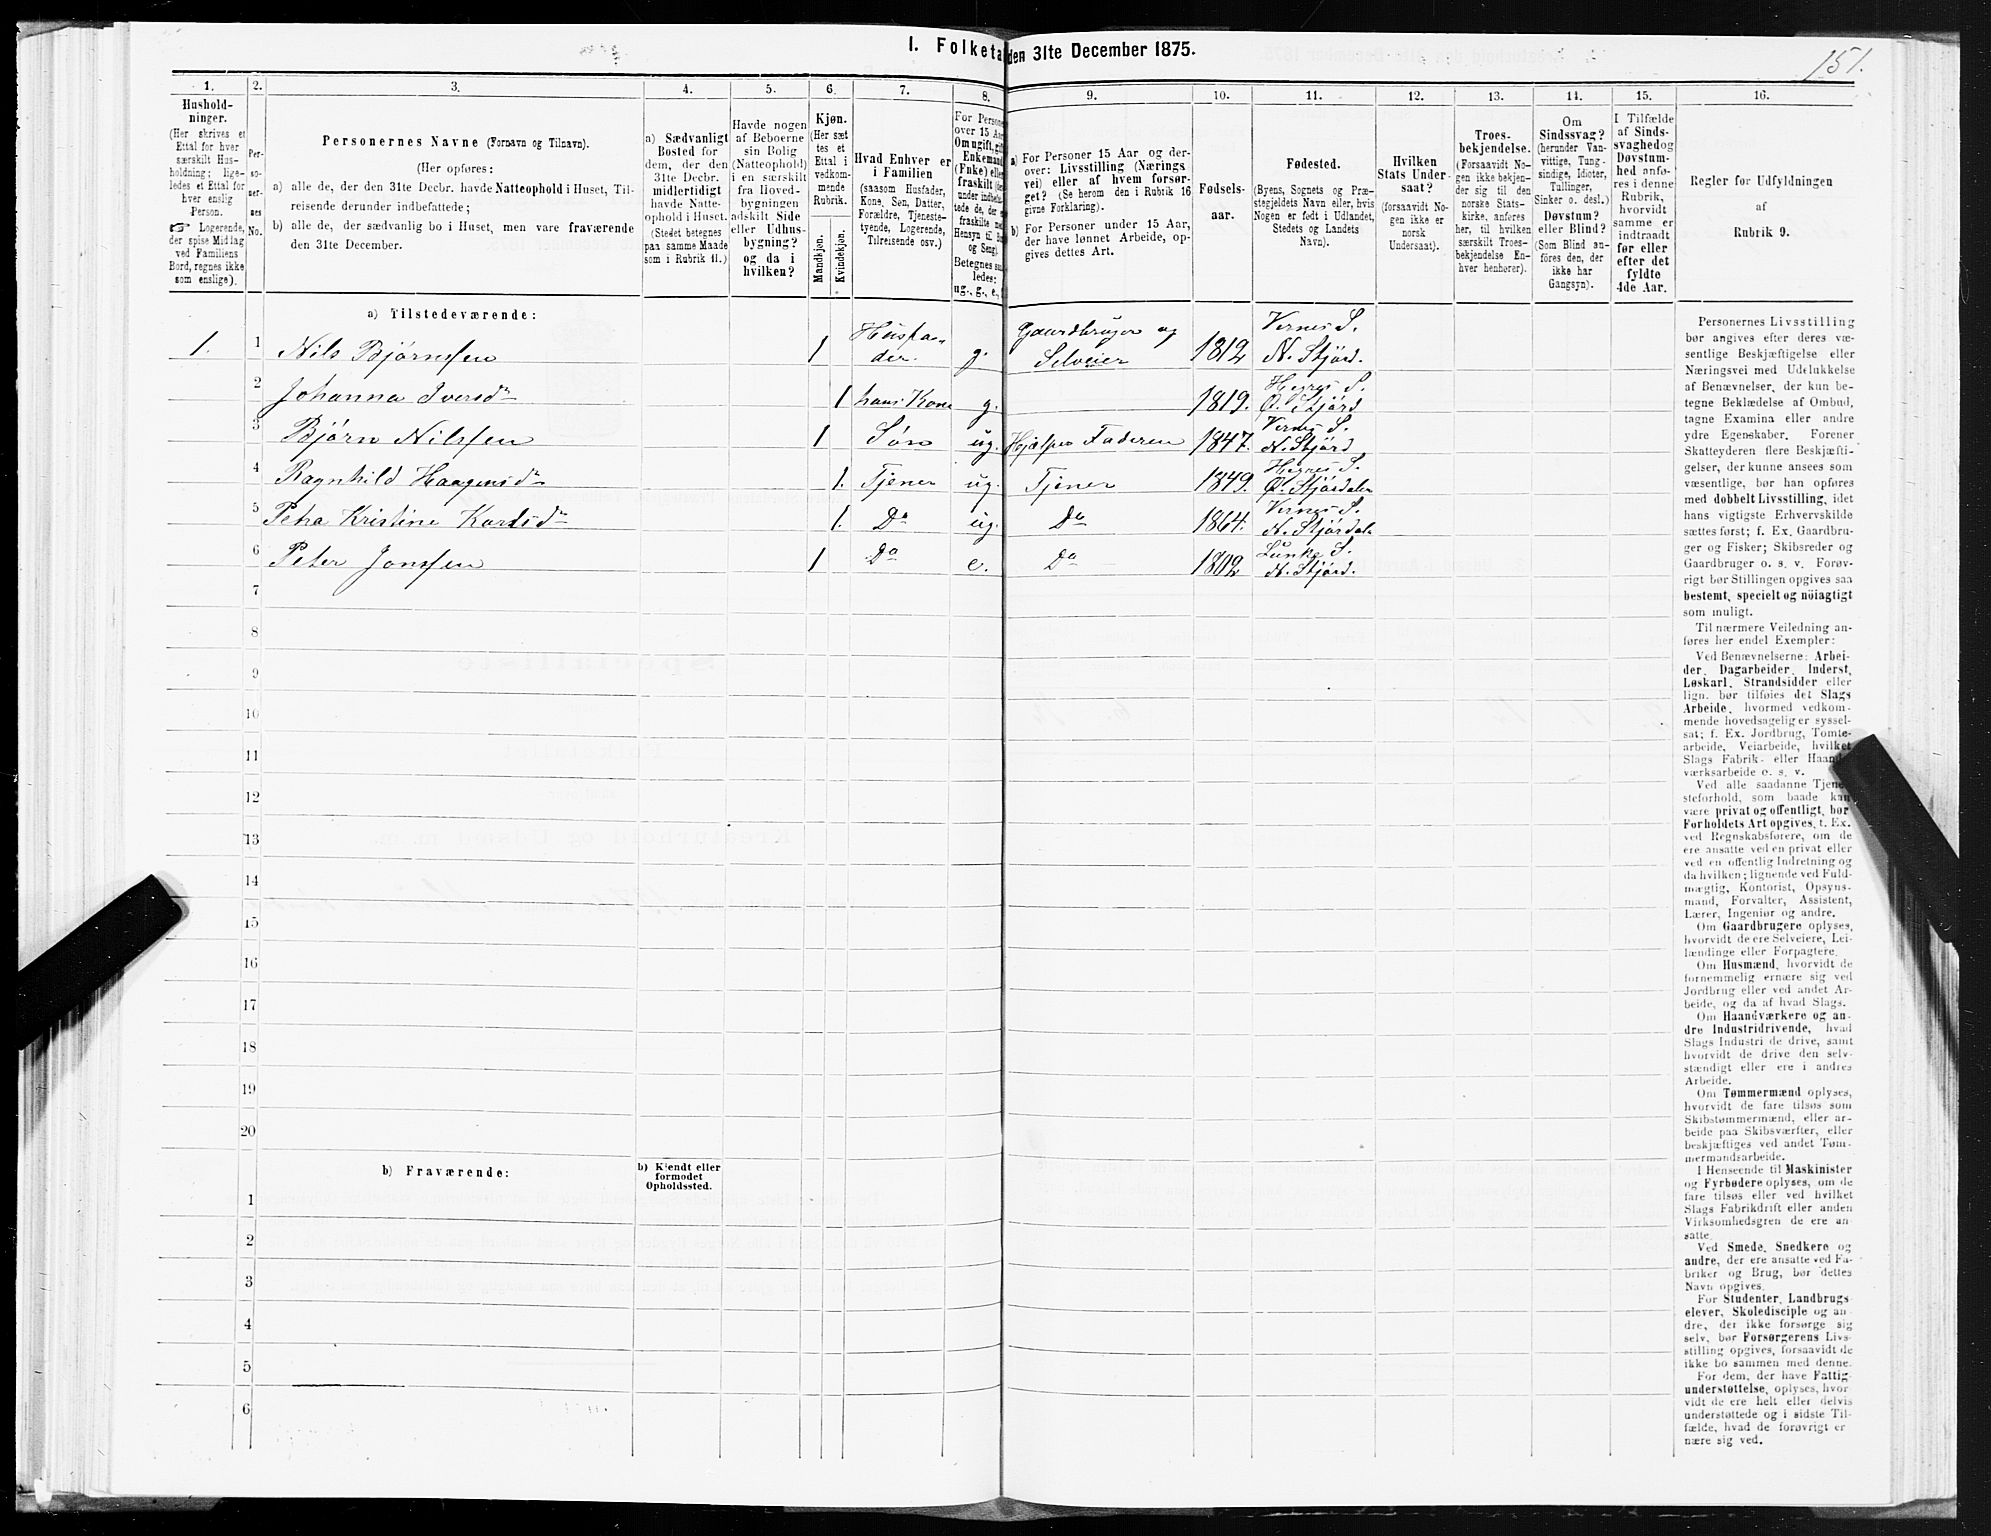 I. Folketa den 31te December 1875.
151.
1. 2. 3. 4. 5. 6. 7. 8. 9. 10. 11. 12. 13. 14. 15. 16.
Hushold-
ninger.
(Her skrives et
Ettal for hver
særskilt Hus-
holdning; lige-
ledes et Ettal for
hver enslig
Person.
☞ Logerende,
der spise Middag
ved Familiens
Bord, regnes ikke
som enslige).
Per-
so-
ner-
nes
No.
Personernes Navne (Fornavn og Tilnavn).
(Her opføres:
a) alle de, der den 31te Decbr. havde Natteophold i Huset, Til-
reisende derunder indbefattede;
b) alle de, der sædvanlig bo i Huset, men vare fraværende
den 31te December.
a) Sædvanligt
Bosted for
dem, der den
31te Decbr.
midlertidigt
havde Natte-
ophold i Huset.
(Stedet betegnes
paa samme Maade
som i Rubrik 11.)
Havde nogen
af Beboerne
sin Bolig
(Natteophold)
i en særskilt
fra Hoved-
bygningen
adskilt Side
eller Udhus-
bygning?
og da i
hvilken?
Kjøn.
(Her sæt
tes et
Ettal i
vedkom-
mende
Rubrik.
Mandkjøn.
Kvindekjøn.
Hvad Enhver er
i Familien
(saasom Husfader,
Kone, Søn, Datter,
Forældre, Tjeneste-
tyende, Logerende,
Tilreisende osv.)
For Persone
over 15 Aar
Om ugift, gift
Enkemand
(Enke) eller
fraskilt (de
under indbefat-
tede de, der e
fraskilte med
Hensyn til Bo
og Seng).
Betegnes saa
ledes:
ug., g., e.,
a) For Personer 15 Aar og der-
over: Livsstilling (Nærings
vei) eller af hvem forsør-
get? (Se herom den i Rubrik 16
givne Forklaring).
b) For Personer under 15 Aar,
der have lønnet Arbeide, op-
gives dettes Art.
Fødsels-
aar.
Fødested.
(Byens, Sognets og Præ-
stegjeldets Navn eller, hvis
Nogen er født i Udlandet,
Stedets og Landets
Navn).
Hvilken
Stats Under-
saat?
(forsaavidt No-
gen ikke er
norsk
Undersaat).
Troes-
bekjendelse.
(Forsaavidt No-
gen ikke bekjen-
der sig til den
norske Stats-
kirke, anføres
her, til hvilken
særskilt Troes-
bekjendelse En-
hver henhører).
Om
Sindssvag?
(herunder Van-
vittige, Tung-
sindige, Idioter,
Tullinger,
Sinker o. desl.)
Døvstum?
eller Blind?
(Som Blind an-
føres den, der
ikke har
Gangsyn).
I Tilfælde
af Sinds-
svaghed og
Døvstum-
hed anfø-
res i denne
Rubrik,
hvorvidt
samme er
indtraadt
før eller
efter det
fyldte
4de Aar.
Regler for Udfyldningen
af
Rubrik 9.
a) Tilstedeværende:
1. 1 Nils Bjørnssen 1 Husfa-der. g. Gaardbruger og Selveier 1812 Vernes S. N. Stjørd.
2 Johanna Iversdr 1 hans Kone g. 1819. Hegres S. Ø. Stjørd
3 Bjørn Nilssen 1 Søn ug. Hjælper Faderen 1847. Vernes S. N. Stjørd
4 Ragnhild Haagensdr 1. Tjener ug. Tjener 1849. Hegres S. Ø. Stjørdalen
5 Petra Kristine Karlsdr 1. Do ug. Do 1864. Vernes S. N. Stjørdal
6 Peter Jonssen 1 Do e. Do 1802 Lunke S. N. Stjørd.
7
8
9
10
11
12
13
14
15
16
17
18
19
20
b) Fraværende:
b) Kjendt eller
formodet
Opholdssted.
1
2
3
4
5
6
Personernes Livsstilling
bør angives efter deres væ-
sentlige Beskjæftigelse eller
Næringsvei med Udelukkelse
af Benævnelser, der kun be-
tegne Beklædelse af Ombud,
tagne Examina eller andre
ydre Egenskaber. Forener
Skatteyderen flere Beskjæfti-
gelser, der kunne ansees som
væsentlige, bør han opføres
med dobbelt Livsstilling, idet
hans vigtigste Erhvervskilde
sættes først; f. Ex. Gaardbru-
ger og Fisker; Skibsreder og
Gaardbruger o. s. v. Forøv-
rigt bør Stillingen opgives saa
bestemt, specielt og nöiagtigt
som muligt.
Til nærmere Veiledning an-
føres her endel Exempler:
Ved Benævnelserne: Arbei-
der, Dagarbeider, Inderst,
Løskarl, Strandsidder eller
lign. bør tilføies det Slags
Arbeide, hvormed vedkom-
mende hovedsagelig er syssel-
sat; f. Ex. Jordbrug, Tomte-
arbeide, Veiarbeide, hvilket
Slags Fabrik- eller Haand-
værksarbeide o. s. v.
Ved alle saadanne Tjene-
steforhold, som baade kan
være privat og offentligt, bør
Forholdets Art opgives, t. Ex.
ved Regnskabsførere, om de
ere ansatte ved en privat eller
ved en offentlig Indretning og
da hvilken; lignende ved Fuld-
mægtig, Kontorist, Opsyns-
mand, Forvalter, Assistent,
Lærer, Ingeniør og andre.
Om Gaardbrugere oplyses,
hvorvidt de ere Selveiere, Lei-
lændinge eller Forpagtere.
Om Husmænd, hvorvidt de
fornemmelig ernære sig ved
Jordbrug eller ved andet Ar-
beide, og da af hvad Slags.
Om Haandværkere og an-
dre Industridrivende, hvad
Slags Industri de drive, samt
hvorvidt de drive den selv-
stændigt eller ere i andres
Arbeide.
Om Tømmermænd oplyses,
hvorvidt de fare tilsøs som
Skibstømmermænd, eller ar-
beide paa Skibsværfter, eller
beskjæftiges ved andet Tøm-
mermandsarbeide.
I Henseende til Maskinister
og Fyrbødere oplyses, om de
fare tilsøs eller ved hvilket
Slags Fabrikdrift eller anden
Virksomhedsgren de ere an-
satte.
Ved Smede, Snedkere og
andre, der ere ansatte ved Fa-
briker og Brug, bør dettes
Navn opgives.
For Studenter, Landbrugs-
elever, Skoledisciple og an-
dre, der ikke forsørge sig
selv, bør Forsørgerens Livs-
stilling opgives, forsaavidt de
ikke bo sammen med denne.
For dem, der have Fattig-
understøttelse, oplyses, hvor-
vidt de ere helt eller delvis
understøttede og i sidste Til-
fælde, hvad de forøvrigt er-
nære sig ved.